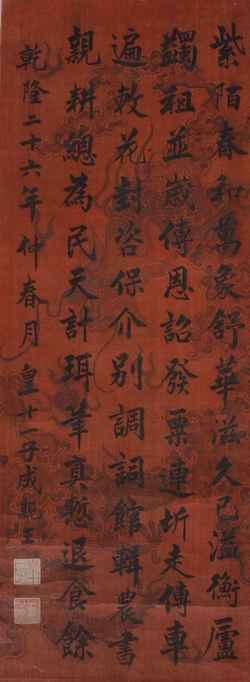 紫陌春和萬象舒華滋久已溢衡廬
蠲租並歲傳恩詔發粟連圻走傳車
遍敕花封咨保介別調詞館輯農書
親耕總為民天計珥筆真慙退食餘
乾隆二十六年仲春月 皇十一子成親王